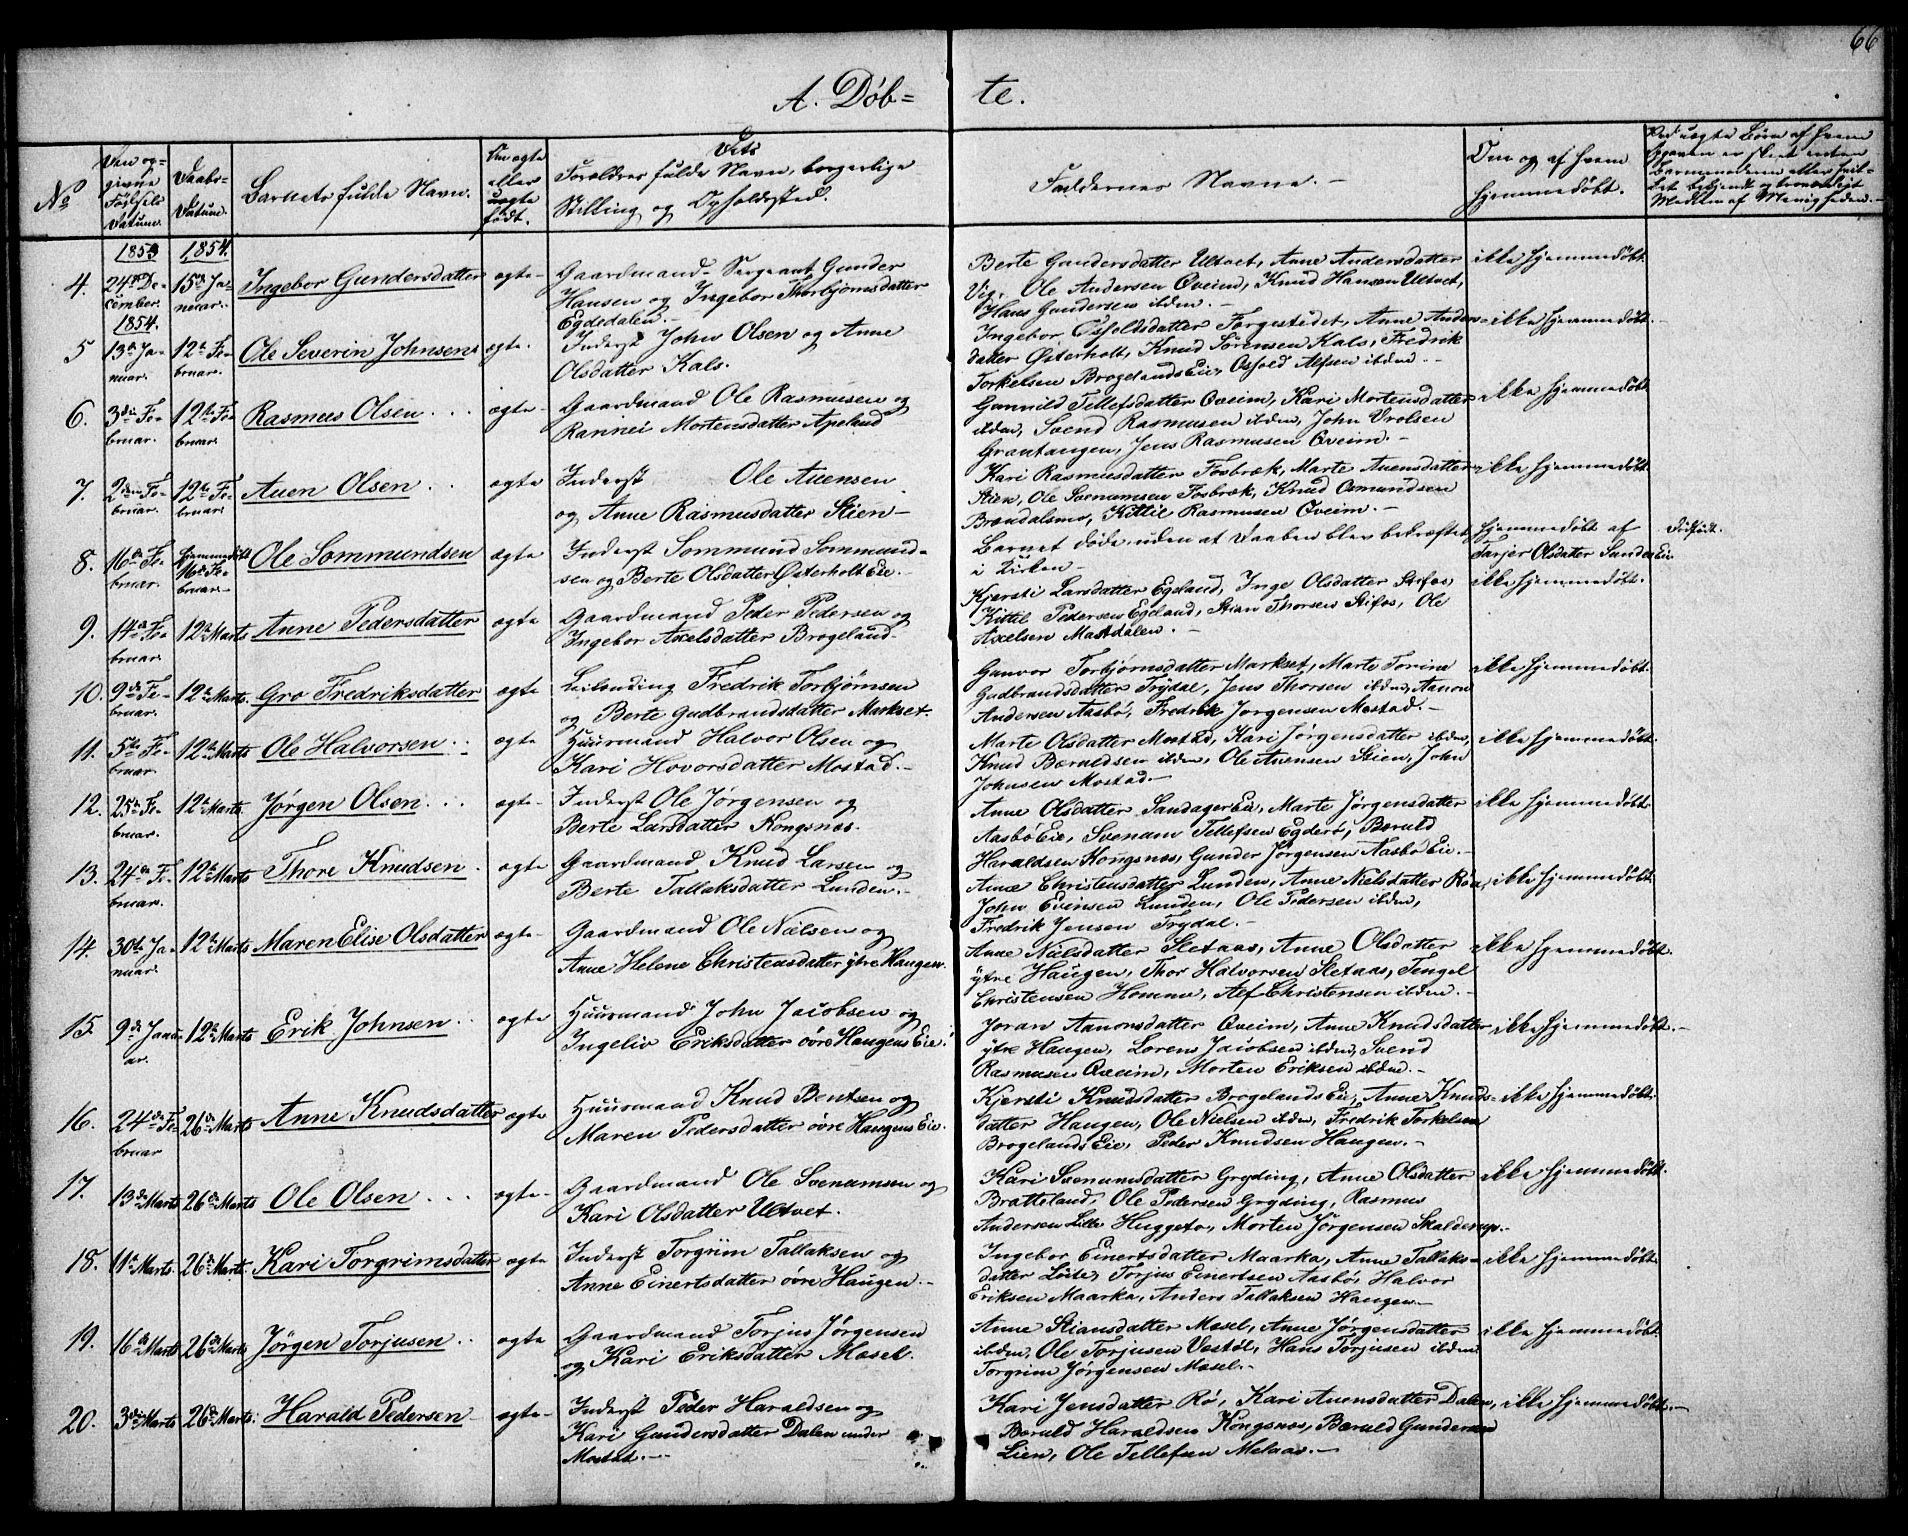 66
A. Døb= te.
No
Den op=
givne
Fødsels
Datum.
Daabs-
Datum.
Barnets fulde Navn.
Om ægte
eller
uægte
født.
Dets
Forældres fulde Navn, borgerlige
Stilling og Opholdssted.
Faddernes Navne.-
Om og af hvem
hjemmedøbt.
1853 1854.
4. 24de De-
cember. 15de Ja-
nuar. Ingebor Gundersdatter ægte-
Gaardmand- Sergeant Gunder
Hansen og Ingebor Thorbjørnsdatter
Egdedalen.-
Berte Gundersdatter Ultvet, Anne Andersdatter
Vig, Ole Andersen Oveim, Knud Hansen Ultvet,
Hans Gundersen ibdm.-
ikke hjemmedøbt.
1854.
5 13de Ja-
nuar. 12te Fe-
bruar. Ole Severin Johnsen ægte.
Inderst John Olsen og Anne
Olsdatter Kals.
Ingebor Osfoldsdatter Forgestedet, Anne Anders-
datter Østerholt, Knud Sørensen Kals, Fredrik
Torkelsen Brogelands Eie, Osfold Alfsen ibdm.-
ikke hjemmedøbt.-
6. 3die Fe-
bruar. 12te Fe-
bruar. Rasmus Olsen... ægte-
Gaardmand Ole Rasmusen og
Rannei Mortensdatter Apeland
Gunnild Tellefsdatter Oveim, Kari Mortensdatter
ibdm, Svend Rasmusen ibdm, John Vrolsen
Grantangen, Jens Rasmusen Oveim.-
ikke hjemmedøbt
7. 2den Fe-
bruar. 12te Fe-
bruar. Auen Olsen.. ægte
Inderst Ole Auensen
og Anne Rasmusdatter Stien-
Kari Rasmusdatter Fosbræk, Marte Auensdatter
Stien, Ole Svenumsen Fosbræk, Knud Osmundsen
Brændalsmo, Kittil Rasmusen Oveim.-
ikke hjemmedøbt.
8. 16de Fe-
bruar. Hjemmedøbt
16de Fe-
bruar.- Ole Sommundsen ægte
Inderst Sommund Sommund-
sen og Berte Olsdatter Østerholt Eie.-
Barnet døde, uden at Daaben blev bekræftet
i Kirken.-
hjemmedøbt af
Tarjer Olsdatter Sandes Eie
9. 14de Fe-
bruar. 12te Marts Anne Pedersdatter ægte
Gaardmand Peder Pedersen og
Ingebor Axelsdatter Brogeland-
Kjersti Larsdatter Egeland, Inge Olsdatter Stifos,
Kittil Pedersen Egeland, Stian Thorsen Stifos, Ole
Axelsen Mastdalen.-
ikke hjemmedøbt.
10. 9de Fe-
bruar. 12te Marts. Gro Fredriksdatter ægte
Leilending Fredrik Torbjørnsen
og Berte Gudbrandsdatter Markset.
Gunvor Torbjørnsdatter Markset, Marte Torine
Gudbrandsdatter Trydal, Jens Thorsen ibdm, Aanon
Andersen Aasbø, Fredrik Jørgensen Mostad.-
ikke hjemmedøbt.
11. 5te Fe-
bruar 12te Marts Ole Halvorsen.. ægte
Huusmand Halvor Olsen og
Kari Hovorsdatter Mostad.-
Marte Olsdatter Mostad, Kari Jørgensdatter ibdm,
Knud Bæruldsen ibdm, Ole Auensen Stien, John
Johnsen Mostad.-
ikke hjemmedøbt.
12. 25de Fe-
bruar. 12te Marts Jørgen Olsen... ægte-
Inderst Ole Jørgensen og
Berte Larsdatter Kongsnæs.
Anne Olsdatter Sandager Eie, Marte Jørgensdatter
Aasbø Eie, Svenum Tellefsen Egderø, Bæruld
Haraldsen Kongsnæs, Gunder Jørgensen Aasbø Eie.-
ikke hjemmedøbt
13. 24de Fe-
bruar. 12te Marts Thore Knudsen. ægte
Gaardmand Knud Larsen og
Berte Tallaksdatter Lunden.-
Anne Christensdatter Lunden, Anne Nielsdatter Røe,
John Evensen Lunden, Ole Pedersen ibdm,
Fredrik Jensen Trydal.-
ikke hjemmedøbt.
14. 30te Ja-
nuar. 12te Marts Maren Elise Olsdatter ægte-
Gaardmand Ole Nielsen og
Anne Helene Christensdatter ytre Haugen.
Anne Nielsdatter Sletaas, Anne Olsdatter
ytre Haugen, Thor Halvorsen Sletaas, Tengel
Christensen Homme, Alf Christensen ibdm.-
ikke hjemmedøbt.
15. 9de Janu-
ar. 12te Marts Erik Johnsen.. ægte
Huusmand John Jacobsen og
Ingeliv Eriksdatter øvre Haugens Eie.
Joran Aanonsdatter Oveim, Anne Knudsdatter
ytre Haugen, Lorens Jacobsen ibdm, Svend
Rasmusen Oveim, Morten Eriksen ibdm.-
ikke hjemmedøbt.-
16. 24de Fe-
bruar 26de Marts Anne Knudsdatter ægte
Huusmand Knud Bentsen og
Maren Pedersdatter øvre Haugens Eie.
Kjersti Knudsdatter Brogelands Eie, Anne Knuds-
datter Haugen, Ole Nielsen ibdm, Fredrik Torkelsen
Brogelands Eie, Peder Knudsen Haugen.-
ikke hjemmedøbt.
17. 13de Marts 26de Marts Ole Olsen... ægte-
Gaardmand Ole Svenumsen og
Kari Olsdatter Ultvet.
Kari Svenumsdatter Gryding, Anne Olsdatter
Bratteland, Ole Pedersen Gryding, Rasmus
Andersen Lille Huggeto, Morten Jørgensen Skalderup.-
ikke hjemmedøbt.
18. 11te Marts 26de Marts. Kari Torgrimsdatter ægte
Inderst Torgrim Tallaksen og
Anne Einertsdatter øvre Haugen.-
Ingebor Einertsdatter Maarka, Anne Tallaks-
datter Løite, Torjus Einertsen Aasbø, Halvor
Eriksen Maarka, Anders Tallaksen Haugen.-
ikke hjemmedøbt.
19. 16de Marts 26de Marts Jørgen Torjusen.. ægte
Gaardmand Torjus Jørgensen
og Kari Eriksdatter Mosel.
Anne Stiansdatter Mosel, Anne Jørgensdatter
ibdm, Ole Torjusen Vestøl, Hans Torjusen ibdm
Torgrim Jørgensen Mosel.-
ikke hjemmedøbt.
20. 3die Marts 26de Marts. Harald Pedersen ægte-
Inderst Peder Haraldsen og
Kari Gundersdatter Dalen under
Mostad.-
Kari Jensdatter Rø, Kari Auonsdatter Dalen,
Bæruld Haraldsen Kongsnæs, Bæruld Gundersen
Lien, Ole Tellefsen Melaas.-
ikke hjemmedøbt.-